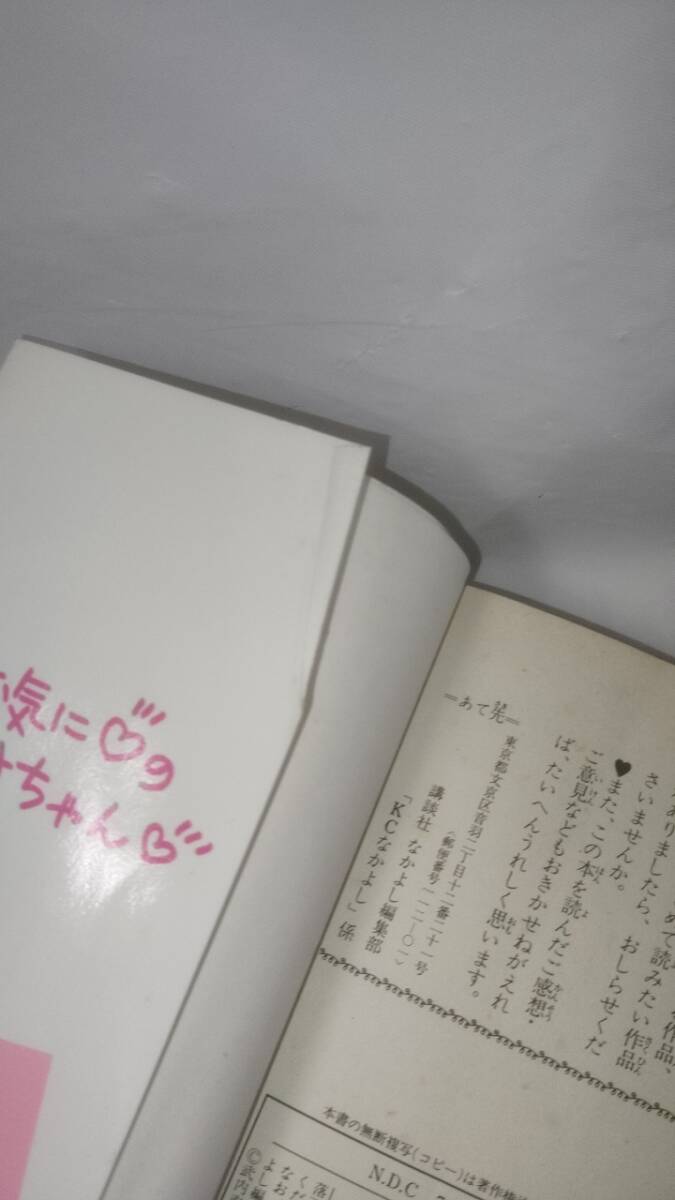 気に♡の
ちゃん♡
めて読みたい作品
ありましたら、おしらせくだ
さいませんか。
♥また、この本を読んだご感想・
ご意見などもおきかせねがえれ
ば、たいへんうれしく思います。
=あて先=
東京都文京区音羽二丁目十二番二十一号
(郵便番号一一二-〇一)
講談社 なかよし編集部
「KCなかよし」係
本書の無断複写(コピー)は著作権
N.D.C
落
くだ
なお
よし編
©武内